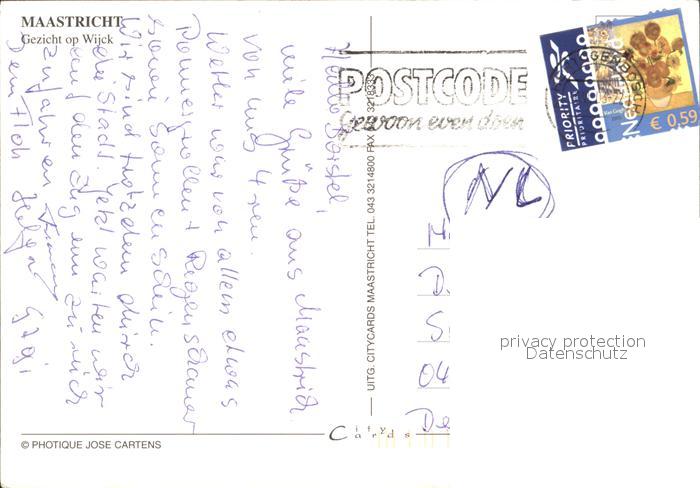 MAASTRICHT
Gezicht op Wijck
Hallo
viele Grüße aus Maastrich
von uns 4ren.
Wetter war von allem etwas
Donnergrollen + Regenschauer
sowie Sonnenschein.
Wir sind trotzdem durch
die Stadt. Jetzt warten wir
auf den Zug um zurück
zu fahren
© PHOTIQUE JOSE CARTENS
UITG. CITYCARDS MAASTRICHT TEL. 043 3214800 FAX 3218333
City Cards
POSTCODE
Gewoon even doen
PRIORITY
PRIORITAIRE
€ 0,59
NL
04
De
privacy protection
Datenschutz